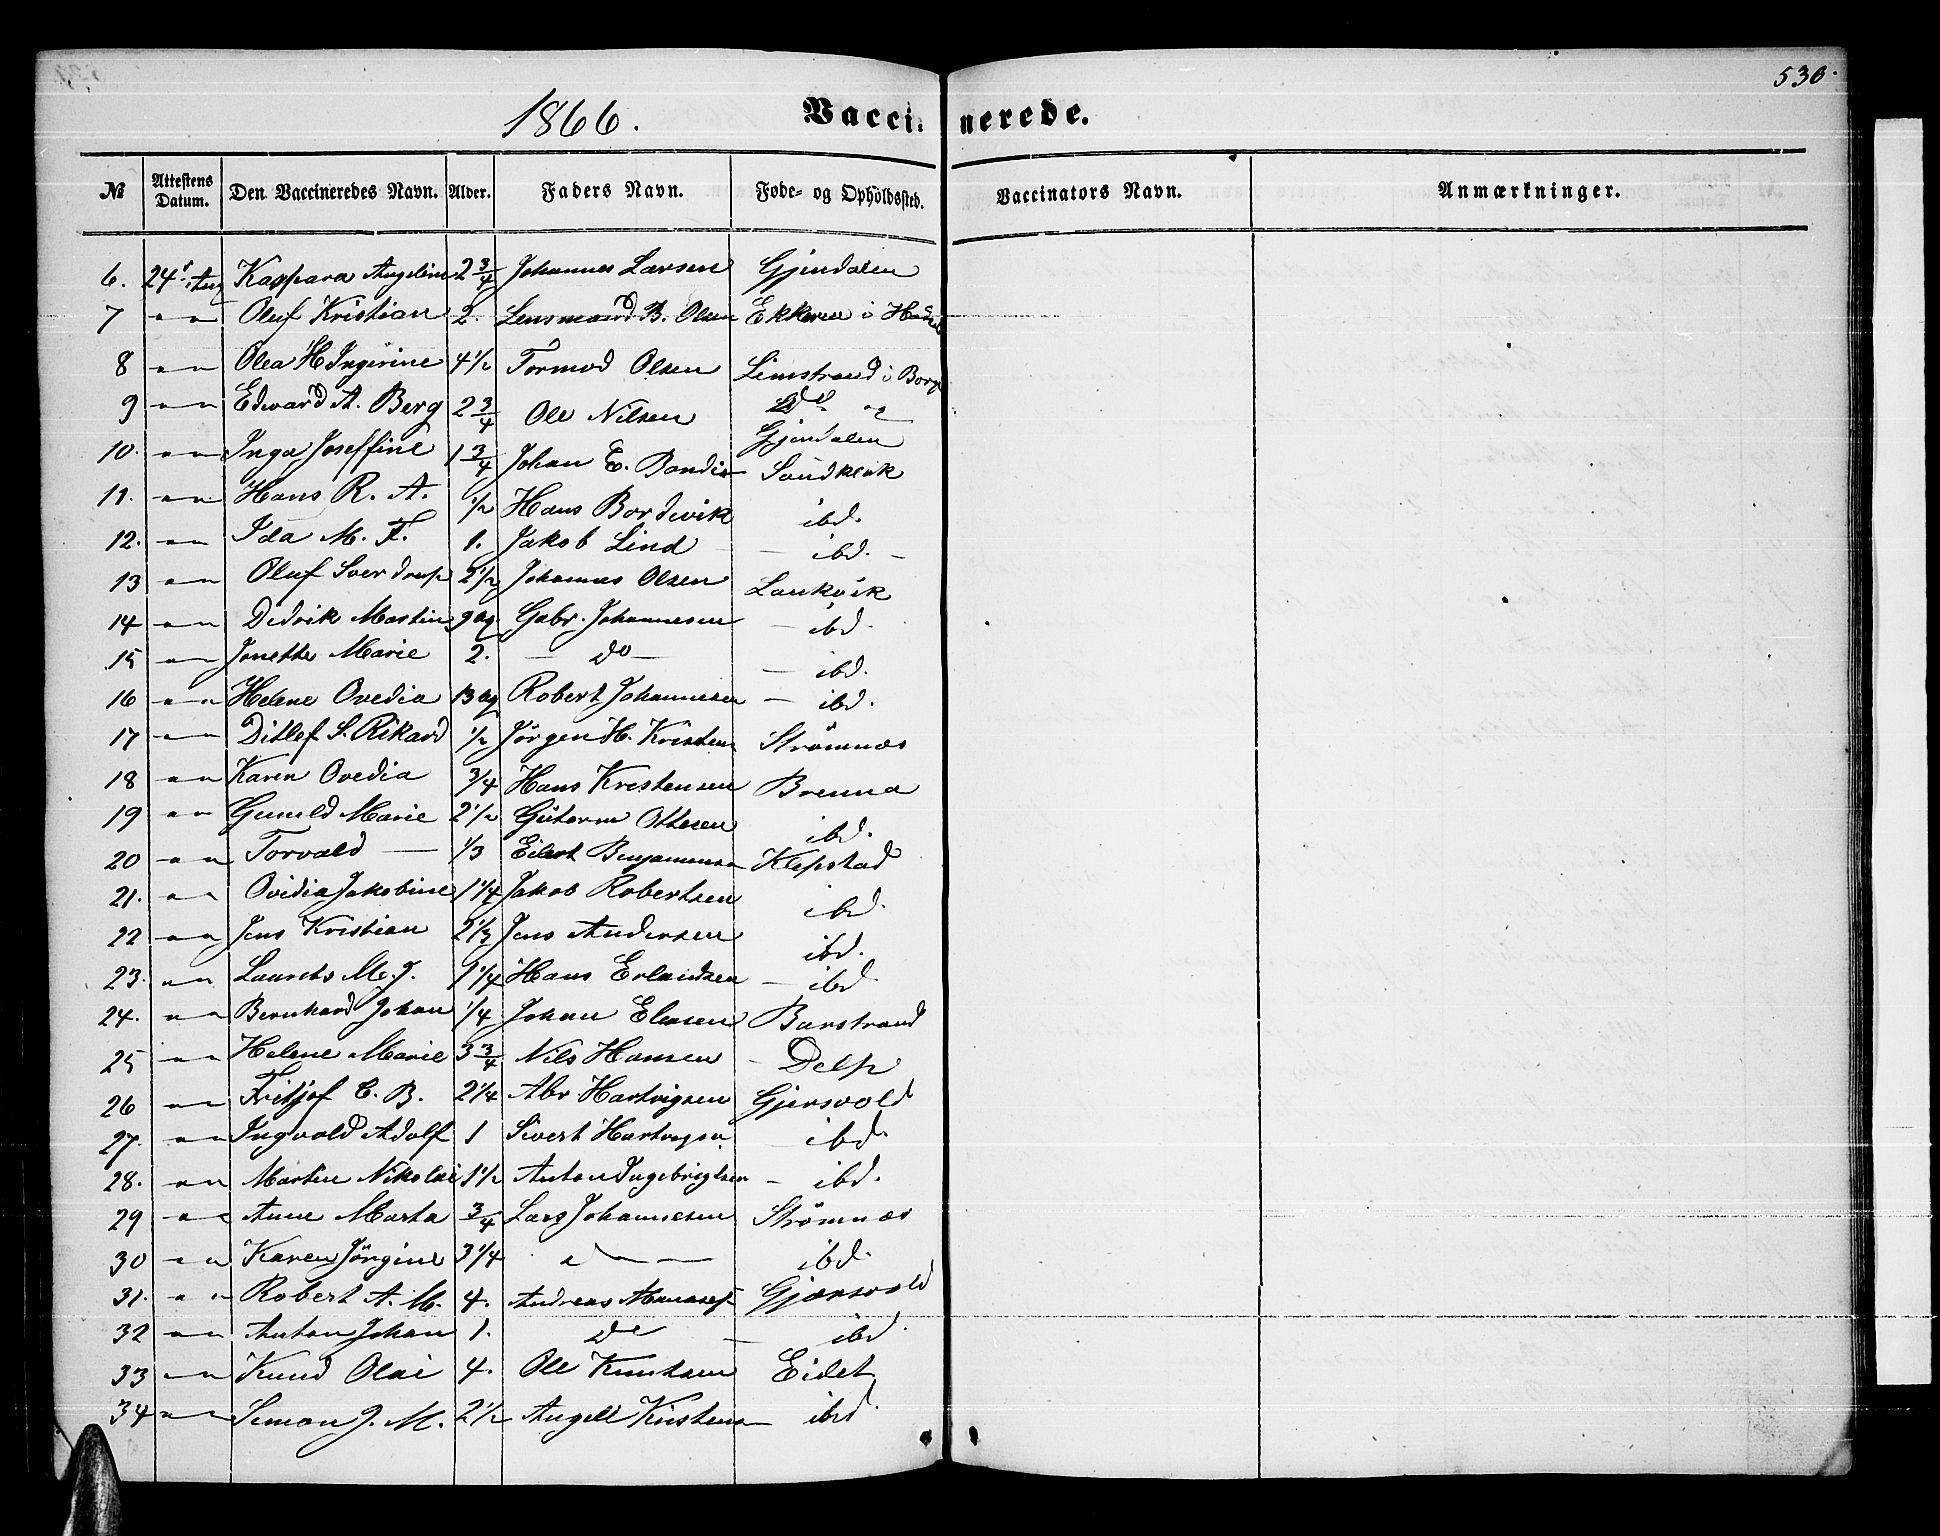 530.
1866. Vaccinerede.
№ Attestens Datum. Den Vaccineredes Navn. Alder. Faders Navn. Føde- og Opholdssted. Vaccinators Navn. Anmærkninger.
6. 24 Aug Kaspara Angeline 2 3/4 Johannes Larsen Gjendalen
7 " " Oluf Kristian 2. Lensmand B. Olsen Ekkeren i
8 " " Olea H Ingerine 4 1/2 Tormod Olsen Limstrand i Borge
9 " " Edward A. Berg 2 3/4 Ole Nilsen Do og Gjendalen
10. " " Inga Joseffine 1 3/4 Johan E. Sandklek
11. " " Hans R. A. 1/2 Hans Bordevik ibd.
12. " " Ida M. F. 1. Jakob Lind – ibd. –
13 " " Oluf Sverdrup 2 1/2 Johannes Olsen Laukvik
14 " " Didrik Martin 9 Gabr. Johannesen – ibd.
15 " " Jonette Marie 2. – do – – ibd.
16 " " Helene Ovedia 13 Robert Johannesen – ibd.
17 " " Ditlef S. Rikard 1/2 Jørgen H. Kristens Strømnæs
18 " " Karen Ovedia 3/4 Hans Kristensen Brenna
19 " " Gunild Marie 2 1/2 Guttorm Ottesen ibd.
20 " " Torvald – 1/3 Eilert Benjaminsen Klepstad
21. " " Ovidia Jakobine 1 1/4 Jakob Robertsen ibd.
22 " " Jens Kristian 2 1/3 Jens Andersen ibd.
23. " " Laurets M. J. 1 1/4 Hans Erlandsen – ibd.
24. " " Bernhard Johan 1/4 Johan Eleasen Barstrand
25 " " Helene Marie 3 3/4 Nils Hansen – Delp
26 " " Fritjof C. B. 2 1/4 Abr Hartvigsen Gjersvold
27. " " Ingvald Adolf 1 Sivert Hartvigsn – ibd.
28. " " Martin Nikolai 1 1/2 Anton Ingebrigtsen – ibd.
29 " " Anne Marta 3/4 Lars Johannesen Strømnæs
30 " " Karen Jørgine 3 1/4 " – ibd.
31. " " Robert A. M. 4. Andreas Gjersvold
32 " " Anton Johan 1. do – ibd.
33 " " Knud Olai 4. Ole Knutsen Eidet
34 " " Simon J. M. 2 1/2 Angell Kristens ibd